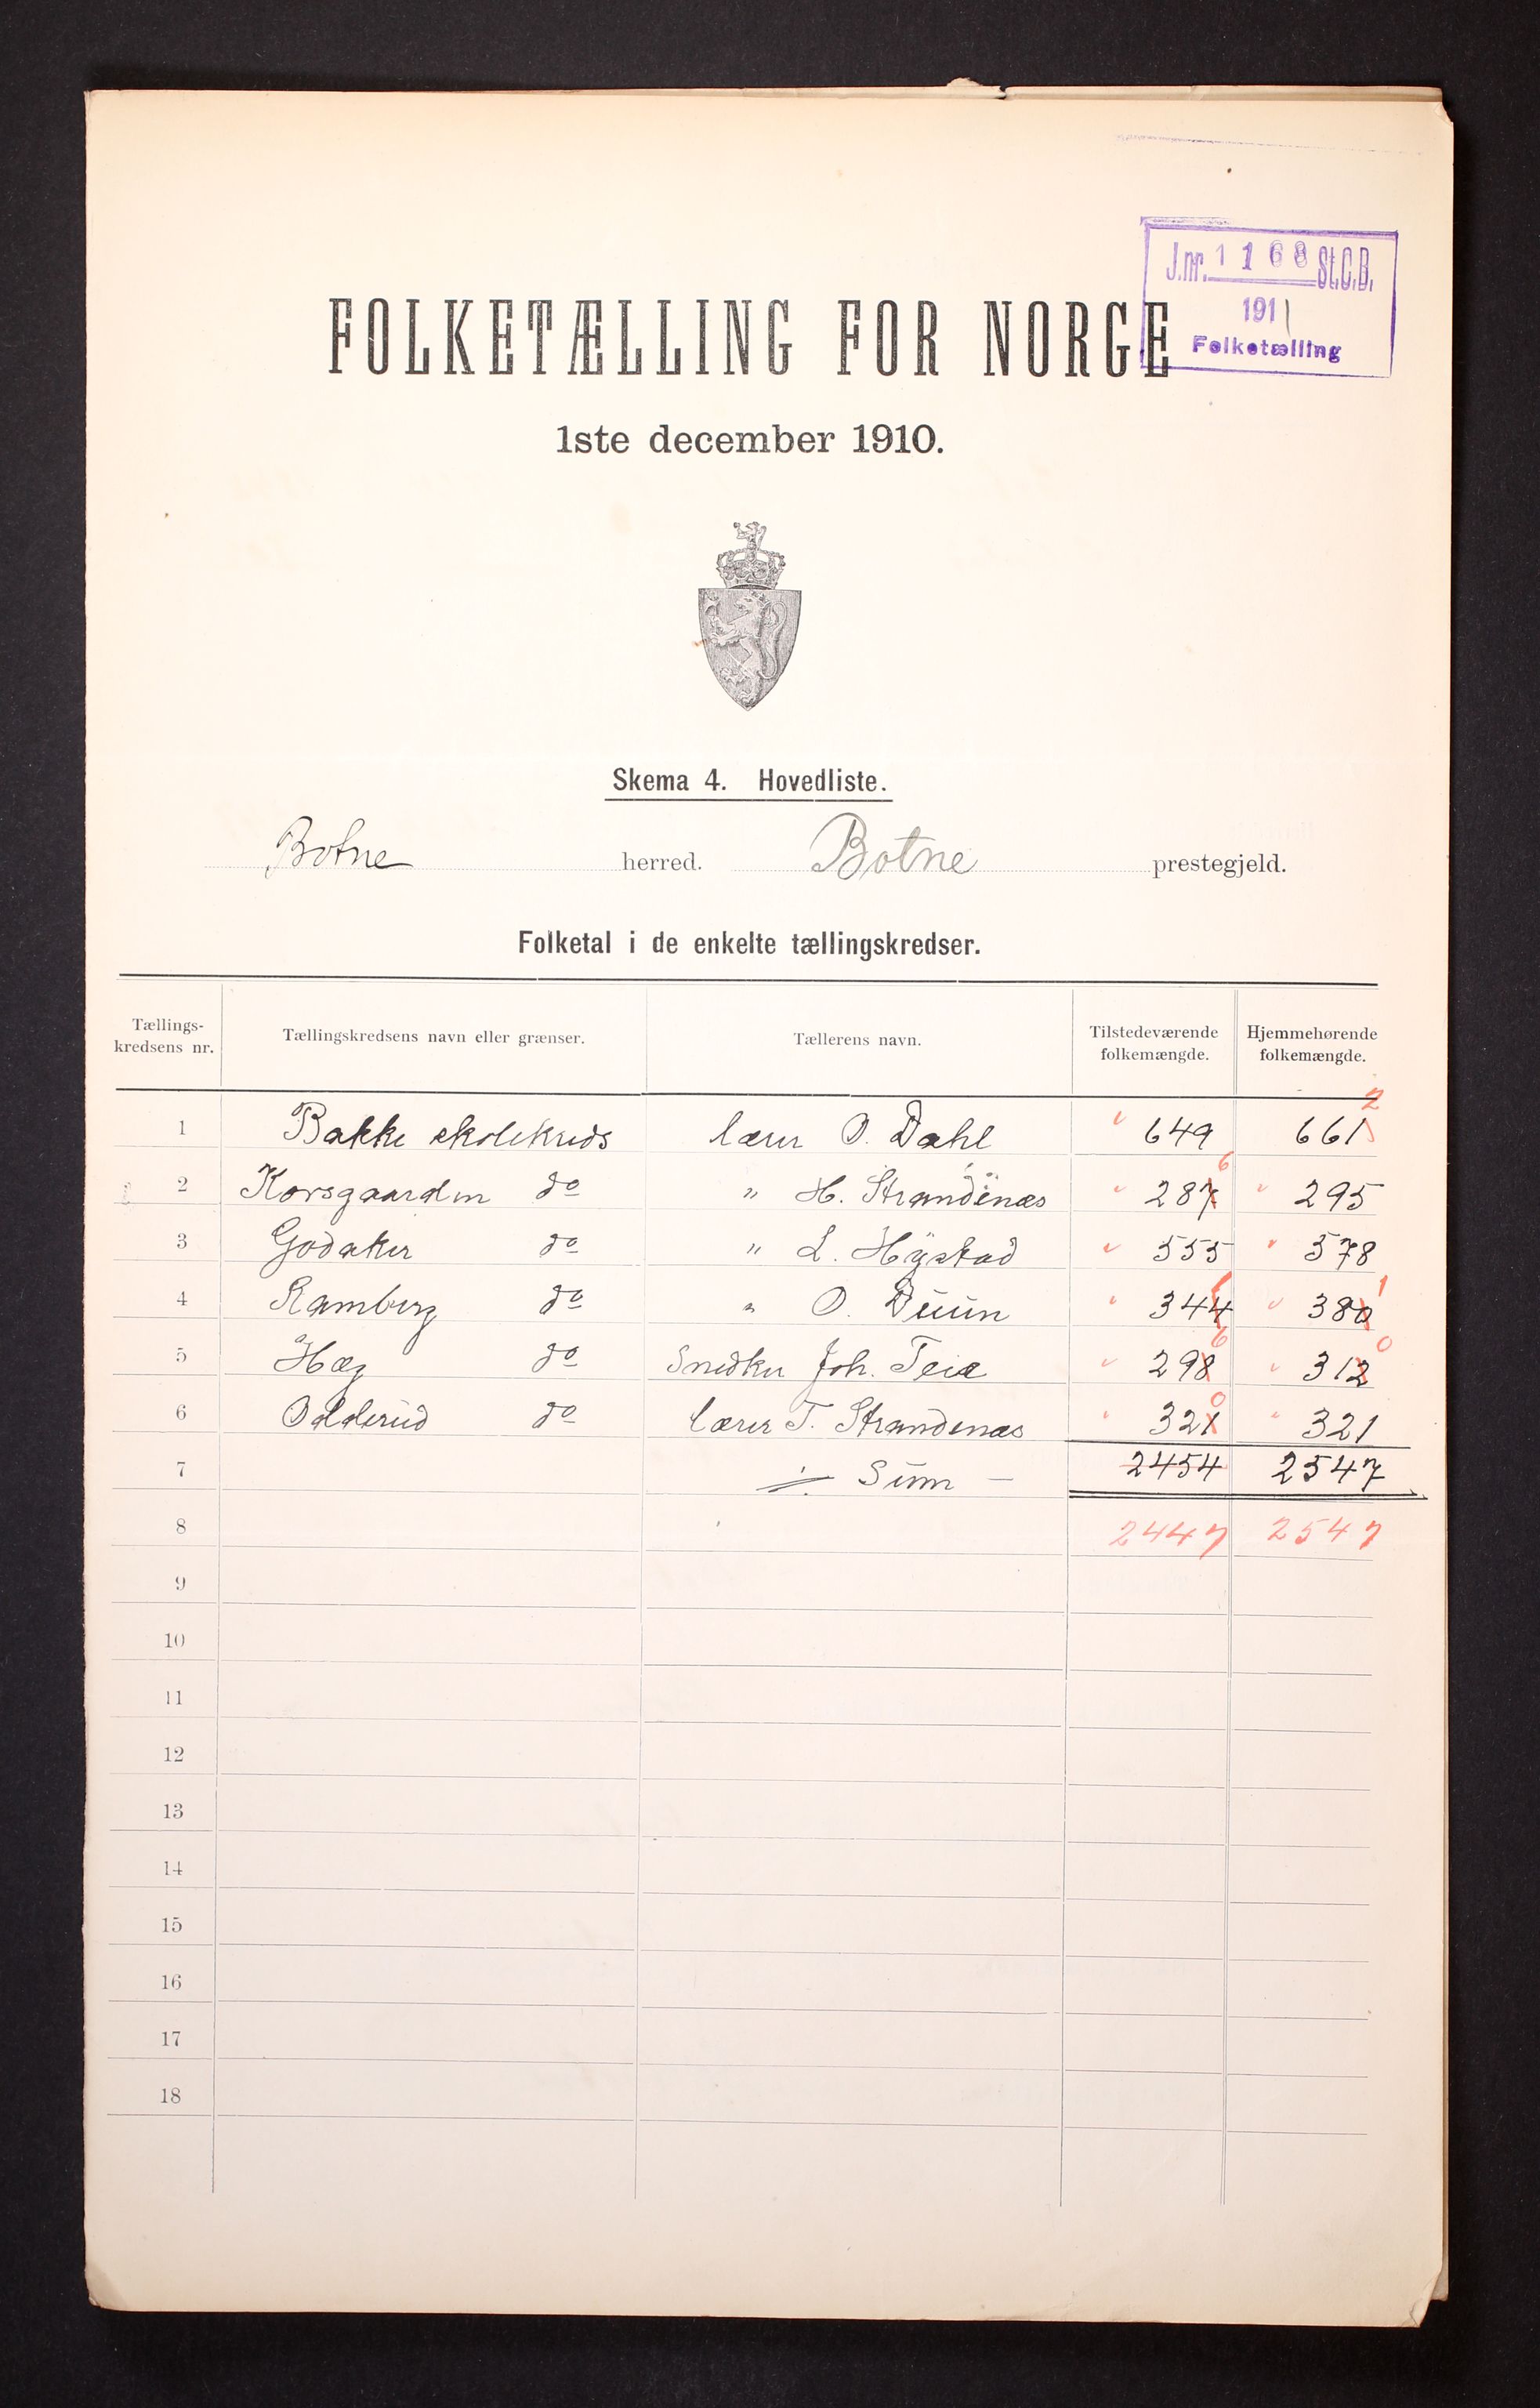 J.nr. 1168 St.C.B.
1911
Folketælling
FOLKETÆLLING FOR NORGE
1ste december 1910.
Skema 4. Hovedliste.
Botne herred. Botne prestegjeld.
Folketal i de enkelte tællingskredser.
Tællings-kredsens nr. Tællingskredsens navn eller grænser. Tællerens navn. Tilstedeværende folkemængde. Hjemmehørende folkemængde.
1 Bakke skolekreds lærer O. Dahl 649 661 2
2 Korsgaarden do " H. Strandenæs 287 6 295
3 Godaker do " L. Hystad 555 578
4 Ramberg do " O. Duun 344 1 380 1
5 Hæg do Snedker Joh. Teie 298 6 312 0
6 Odderud do lærer T. Strandenæs 321 0 321
7 Sum 2454 2547
8 2447 2547
9
10
11
12
13
14
15
16
17
18